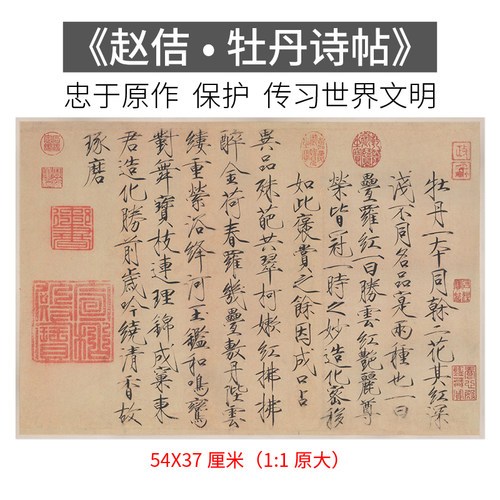 《赵佶•牡丹诗帖》
忠于原作 保护 传习世界文明
牡丹一本同幹二花其紅深
淺不同名品寔兩種也一曰
疊羅紅一曰勝雲紅艷麗尊
榮皆冠一時之妙造化密移
如此褒賞之餘因成口占
異品殊葩共翠柯嫩紅拂拂
醉金荷春羅幾疊敷丹陛雲
縷重縈浴絳河玉鑑和鳴鸞
對舞寶枝連理錦成窠東
君造化勝前歲吟繞清香故
琢磨
54X37 厘米（1:1 原大）